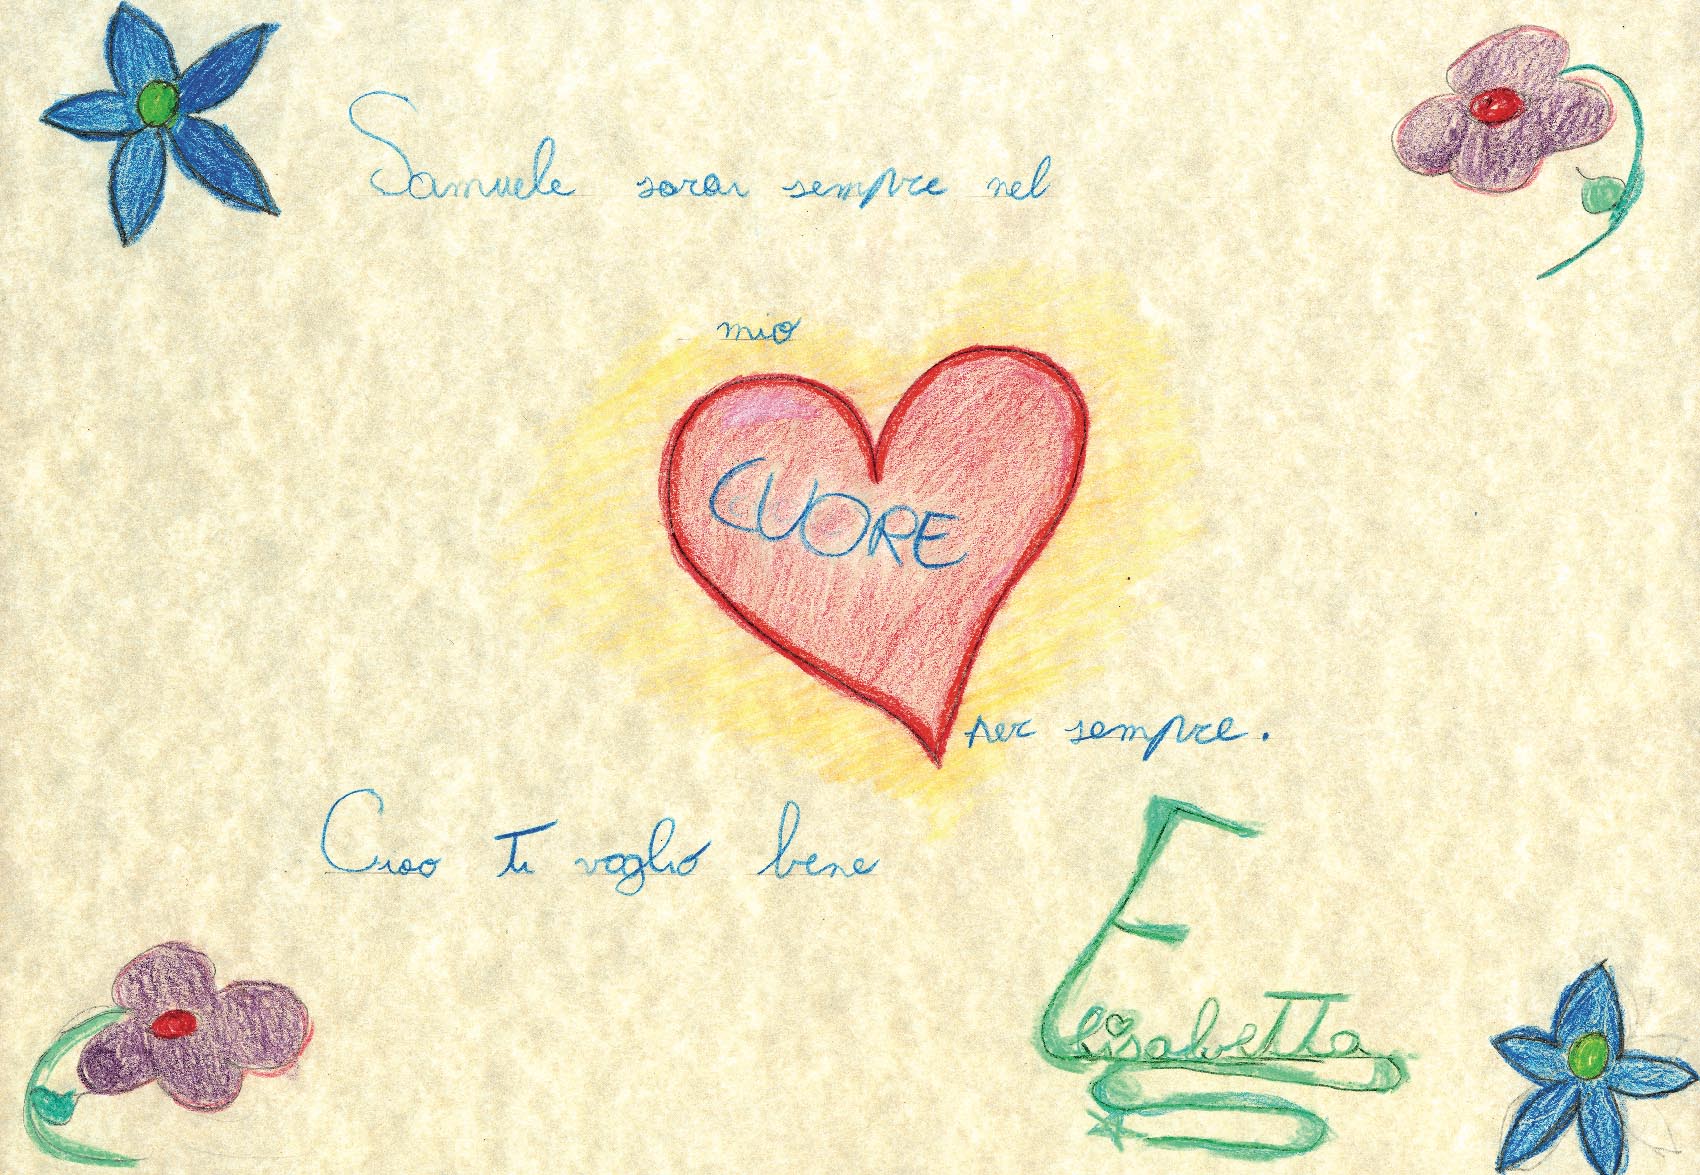 Samuele sarai sempre nel
mio
CUORE
per sempre.
Ciao Ti voglio bene
Elisabetta